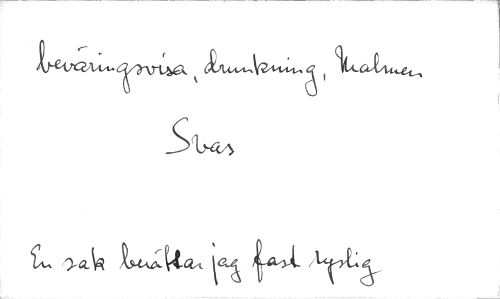 beväringsvisa, drunkning, Malmen
Svas
En sak berättar jag fast ryslig